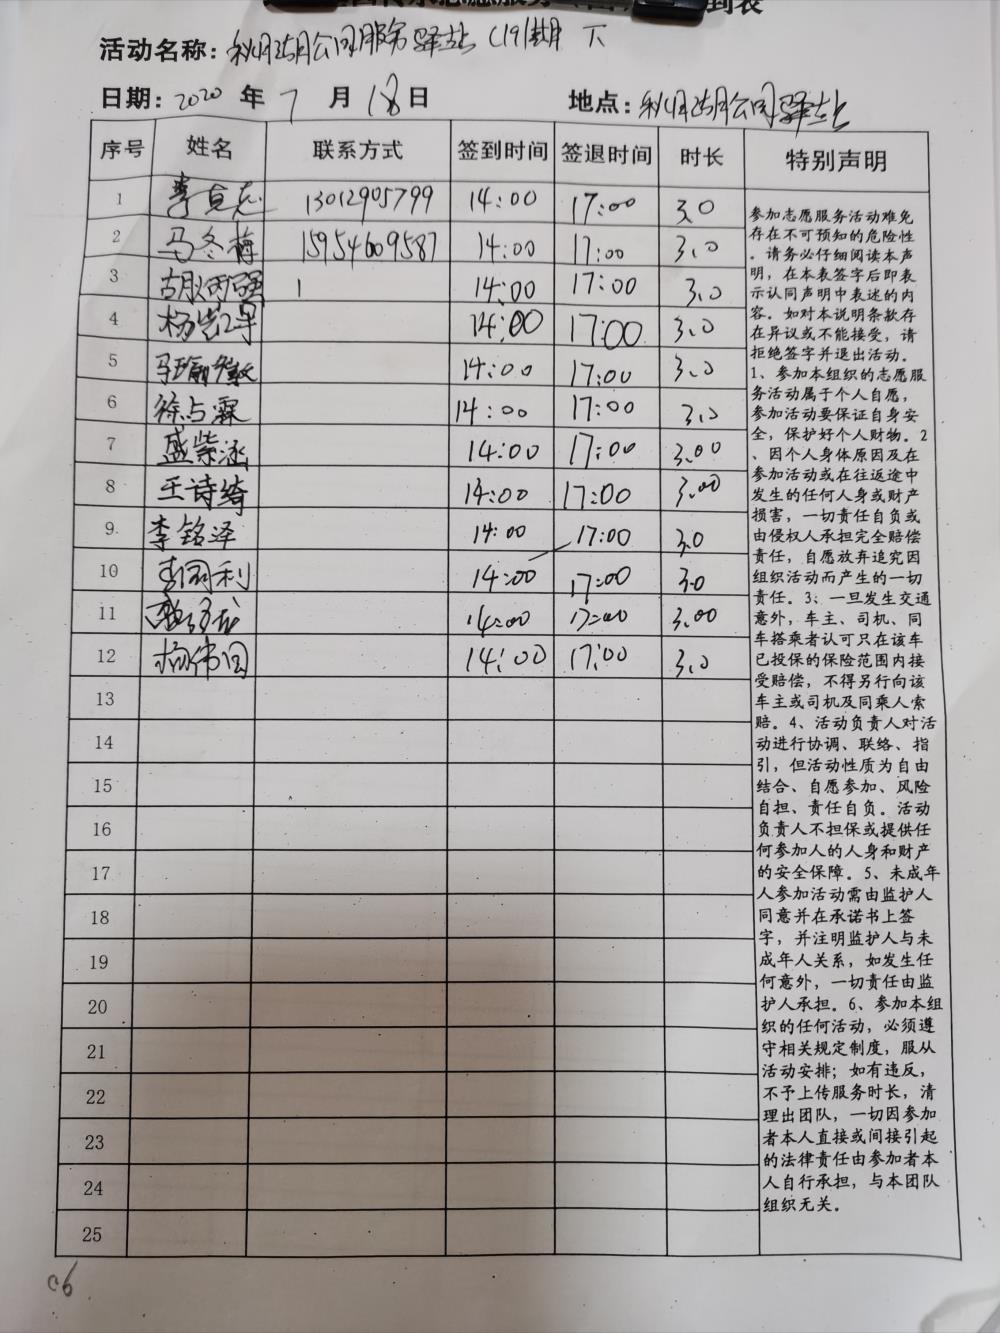 到表
活动名称: 秋月湖公园服务驿站(19期 下
日期: 2020 年 7 月 18 日 地点: 秋月湖公园驿站
序号 姓名 联系方式 签到时间 签退时间 时长 特别声明
1 李 13012905799 14:00 17:00 3.0
2 马冬梅 15954609587 14:00 17:00 3.0
3 胡炳强 1 14:00 17:00 3.0
4 杨 14:00 17:00 3.0
5 14:00 17:00 3.0
6 徐占霖 14:00 17:00 3.0
7 盛紫涵 14:00 17:00 3.00
8 王诗绮 14:00 17:00 3.00
9 李铭泽 14:00 17:00 3.0
10 利 14:00 17:00 3.0
11 14:00 17:00 3.00
12 杨伟国 14:00 17:00 3.0
13
14
15
16
17
18
19
20
21
22
23
24
25
参加志愿服务活动难免
存在不可预知的危险性
。请务必仔细阅读本声
明,在本表签字后即表
示认同声明中表述的内
容。如对本说明条款存
在异议或不能接受,请
拒绝签字并退出活动。
1、参加本组织的志愿服
务活动属于个人自愿,
参加活动要保证自身安
全,保护好个人财物。2
、因个人身体原因及在
参加活动或在往返途中
发生的任何人身或财产
损害,一切责任自负或
由侵权人承担完全赔偿
责任,自愿放弃追究因
组织活动而产生的一切
责任。3、一旦发生交通
意外,车主、司机、同
车搭乘者认可只在该车
已投保的保险范围内接
受赔偿,不得另行向该
车主或司机及同乘人索
赔。4、活动负责人对活
动进行协调、联络、指
引,但活动性质为自由
结合、自愿参加、风险
自担、责任自负。活动
负责人不担保或提供任
何参加人的人身和财产
的安全保障。5、未成年
人参加活动需由监护人
同意并在承诺书上签
字,并注明监护人与未
成年人关系,如发生任
何意外,一切责任由监
护人承担。6、参加本组
织的任何活动,必须遵
守相关规定制度,服从
活动安排;如有违反,
不予上传服务时长,清
理出团队,一切因参加
者本人直接或间接引起
的法律责任由参加者本
人自行承担,与本团队
组织无关。
06